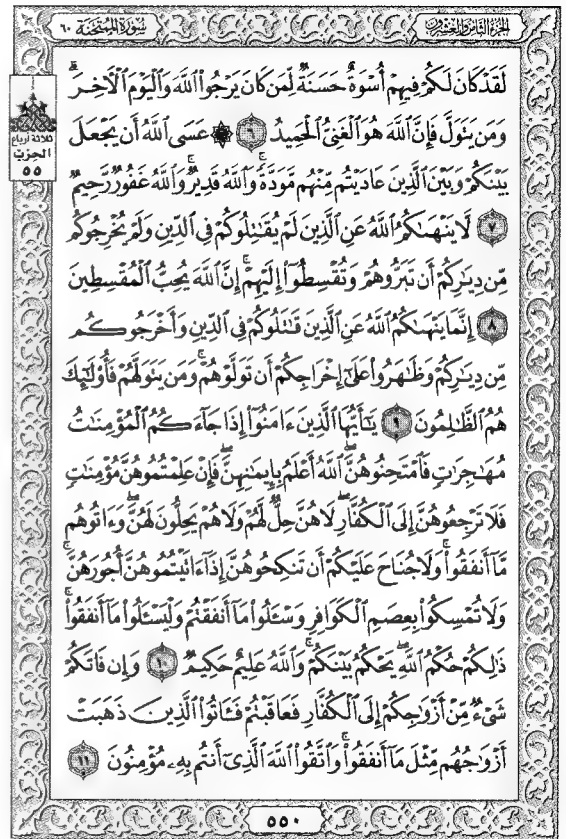 الجزء الثامن والعشرون
سورة الممتحنة ٦٠
لَقَدْ كَانَ لَكُمْ فِيهِمْ أُسْوَةٌ حَسَنَةٌ لِّمَن كَانَ يَرْجُوا۟ ٱللَّهَ وَٱلْيَوْمَ ٱلْءَاخِرَ ۚ
وَمَن يَتَوَلَّ فَإِنَّ ٱللَّهَ هُوَ ٱلْغَنِىُّ ٱلْحَمِيدُ ٦ ۞ عَسَى ٱللَّهُ أَن يَجْعَلَ
ثلاثة أرباع
الحزب
٥٥
بَيْنَكُمْ وَبَيْنَ ٱلَّذِينَ عَادَيْتُم مِّنْهُم مَّوَدَّةً ۚ وَٱللَّهُ قَدِيرٌ ۚ وَٱللَّهُ غَفُورٌ رَّحِيمٌ
٧ لَّا يَنْهَىٰكُمُ ٱللَّهُ عَنِ ٱلَّذِينَ لَمْ يُقَـٰتِلُوكُمْ فِى ٱلدِّينِ وَلَمْ يُخْرِجُوكُم
مِّن دِيَـٰرِكُمْ أَن تَبَرُّوهُمْ وَتُقْسِطُوٓا۟ إِلَيْهِمْ ۚ إِنَّ ٱللَّهَ يُحِبُّ ٱلْمُقْسِطِينَ
٨ إِنَّمَا يَنْهَىٰكُمُ ٱللَّهُ عَنِ ٱلَّذِينَ قَـٰتَلُوكُمْ فِى ٱلدِّينِ وَأَخْرَجُوكُم
مِّن دِيَـٰرِكُمْ وَظَـٰهَرُوا۟ عَلَىٰٓ إِخْرَاجِكُمْ أَن تَوَلَّوْهُمْ ۚ وَمَن يَتَوَلَّهُمْ فَأُو۟لَـٰٓئِكَ
هُمُ ٱلظَّـٰلِمُونَ ٩ يَـٰٓأَيُّهَا ٱلَّذِينَ ءَامَنُوٓا۟ إِذَا جَآءَكُمُ ٱلْمُؤْمِنَـٰتُ
مُهَـٰجِرَٰتٍ فَٱمْتَحِنُوهُنَّ ۖ ٱللَّهُ أَعْلَمُ بِإِيمَـٰنِهِنَّ ۖ فَإِنْ عَلِمْتُمُوهُنَّ مُؤْمِنَـٰتٍ
فَلَا تَرْجِعُوهُنَّ إِلَى ٱلْكُفَّارِ ۖ لَا هُنَّ حِلٌّ لَّهُمْ وَلَا هُمْ يَحِلُّونَ لَهُنَّ ۖ وَءَاتُوهُم
مَّآ أَنفَقُوا۟ ۚ وَلَا جُنَاحَ عَلَيْكُمْ أَن تَنكِحُوهُنَّ إِذَآ ءَاتَيْتُمُوهُنَّ أُجُورَهُنَّ ۚ
وَلَا تُمْسِكُوا۟ بِعِصَمِ ٱلْكَوَافِرِ وَسْـَٔلُوا۟ مَآ أَنفَقْتُمْ وَلْيَسْـَٔلُوا۟ مَآ أَنفَقُوا۟ ۚ
ذَٰلِكُمْ حُكْمُ ٱللَّهِ ۖ يَحْكُمُ بَيْنَكُمْ ۚ وَٱللَّهُ عَلِيمٌ حَكِيمٌ ١٠ وَإِن فَاتَكُمْ
شَىْءٌ مِّنْ أَزْوَٰجِكُمْ إِلَى ٱلْكُفَّارِ فَعَاقَبْتُمْ فَـَٔاتُوا۟ ٱلَّذِينَ ذَهَبَتْ
أَزْوَٰجُهُم مِّثْلَ مَآ أَنفَقُوا۟ ۚ وَٱتَّقُوا۟ ٱللَّهَ ٱلَّذِىٓ أَنتُم بِهِۦ مُؤْمِنُونَ ١١
٥٥٠